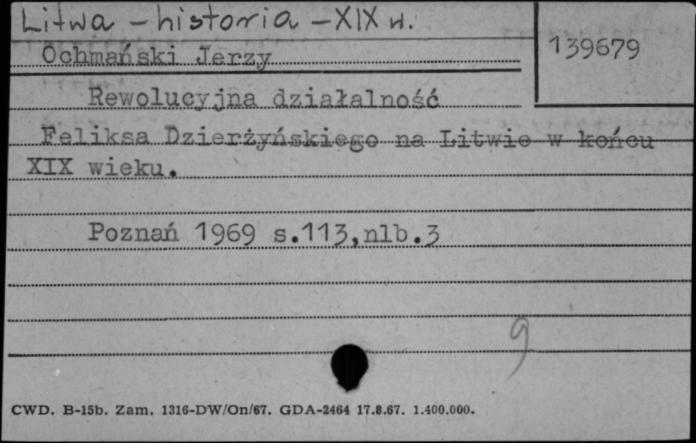 Litwa - historia - XIX w.
139679
Ochmański Jerzy
Rewolucyjna działalność
Feliksa Dzierżyńskiego na Litwie w końcu
XIX wieku.
Poznań 1969 s.113,nlb.3
9
CWD. B-15b. Zam. 1316-DW/On/67. GDA-2464 17.8.67. 1.400.000.